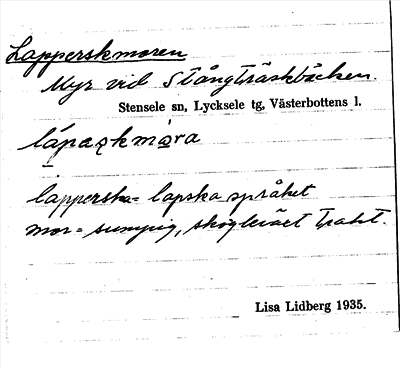 Lapperskmoren
Myr vid Stångträskbäcken.
Stensele sn, Lycksele tg, Västerbottens l.
lapperska = lapska språket
mor = sumpig, skogbeväxt trakt.
Lisa Lidberg 1935.